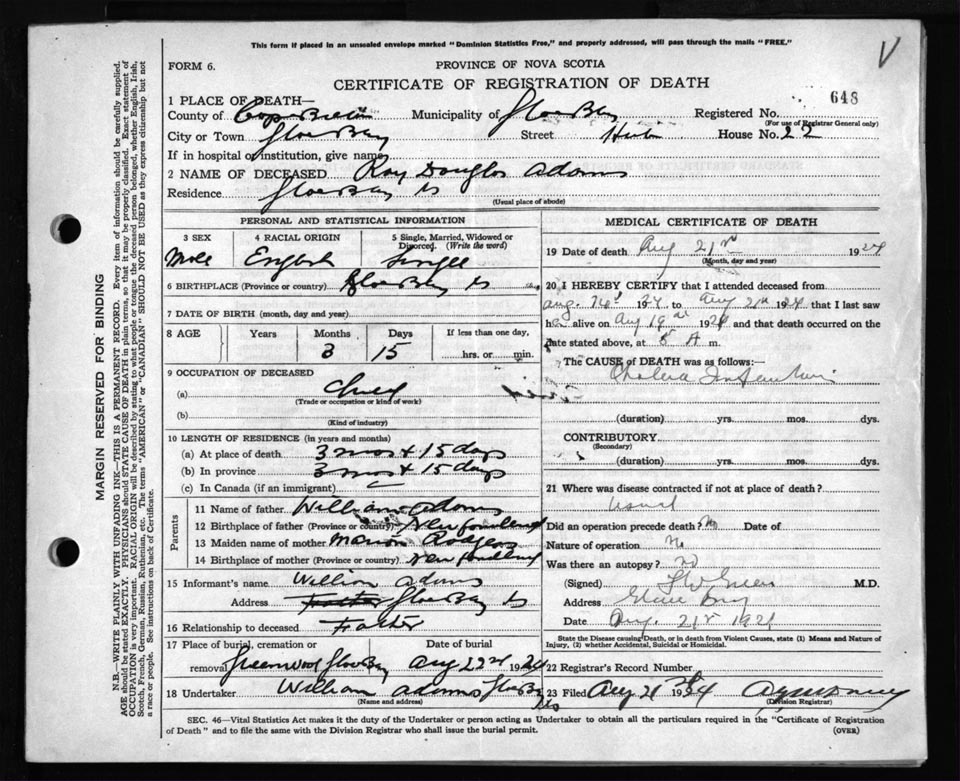 This form if placed in an unsealed envelope marked "Dominion Statistics Free," and properly addressed, will pass through the mails "FREE."
V
FORM 6.
PROVINCE OF NOVA SCOTIA
CERTIFICATE OF REGISTRATION OF DEATH
648
1 PLACE OF DEATH—
County of Cape Breton Municipality of Glace Bay Registered No.
(For use of Registrar General only)
City or Town Glace Bay Street House No. 22
If in hospital or institution, give name
2 NAME OF DECEASED Roy Douglas Adams
Residence Glace Bay NS
(Usual place of abode)
PERSONAL AND STATISTICAL INFORMATION
3 SEX 4 RACIAL ORIGIN 5 Single, Married, Widowed or Divorced. (Write the word)
Male English Single
6 BIRTHPLACE (Province or country) Glace Bay NS
7 DATE OF BIRTH (month, day and year)
8 AGE Years Months Days If less than one day,
3 15 hrs. or min.
9 OCCUPATION OF DECEASED
(a) Child
(Trade or occupation or kind of work)
(b)
(Kind of industry)
10 LENGTH OF RESIDENCE (in years and months)
(a) At place of death 3 mos & 15 days
(b) In province 3 mos & 15 days
(c) In Canada (if an immigrant)
Parents
11 Name of father William Adams
12 Birthplace of father (Province or country) Newfoundland
13 Maiden name of mother Marion Rodgers
14 Birthplace of mother (Province or country) Newfoundland
15 Informant's name William Adams
Address Father Glace Bay NS
16 Relationship to deceased Father
17 Place of burial, cremation or removal Date of burial
Greenwood Glace Bay Aug 22nd 1924
18 Undertaker William Adams Glace Bay NS
(Name and address)
MEDICAL CERTIFICATE OF DEATH
19 Date of death Aug 21st 1924
(Month, day and year)
20 I HEREBY CERTIFY that I attended deceased from
Aug. 1924 to Aug 21st 1924 that I last saw
h alive on Aug 19 1924 and that death occurred on the
date stated above, at 5 A m.
The CAUSE of DEATH was as follows:—
Cholera Infantum
(duration) yrs. mos. dys.
CONTRIBUTORY
(Secondary)
(duration) yrs. mos. dys.
21 Where was disease contracted if not at place of death?
Did an operation precede death? No Date of
Nature of operation No
Was there an autopsy? No
(Signed) M.D.
Address Glace Bay
Date Aug. 21st 1924
State the Disease causing Death, or in death from Violent Causes, state (1) Means and Nature of Injury, (2) whether Accidental, Suicidal or Homicidal.
22 Registrar's Record Number
23 Filed Aug 21 1924
(Division Registrar)
SEC. 46—Vital Statistics Act makes it the duty of the Undertaker or person acting as Undertaker to obtain all the particulars required in the "Certificate of Registration
of Death" and to file the same with the Division Registrar who shall issue the burial permit.
(OVER)
MARGIN RESERVED FOR BINDING
N.B.—WRITE PLAINLY WITH UNFADING INK—THIS IS A PERMANENT RECORD. Every item of information should be carefully supplied.
AGE should be stated EXACTLY. PHYSICIANS should STATE CAUSE OF DEATH in plain terms, so that it may be properly classified. Exact statement of
OCCUPATION is very important. RACIAL ORIGIN will be described by stating to what people or tongue the deceased person belonged, whether English, Irish,
Scotch, French, German, Russian, Ruthenian, etc. The terms "AMERICAN" or "CANADIAN" SHOULD NOT BE USED as they express citizenship but not
a race or people. See instructions on back of Certificate.